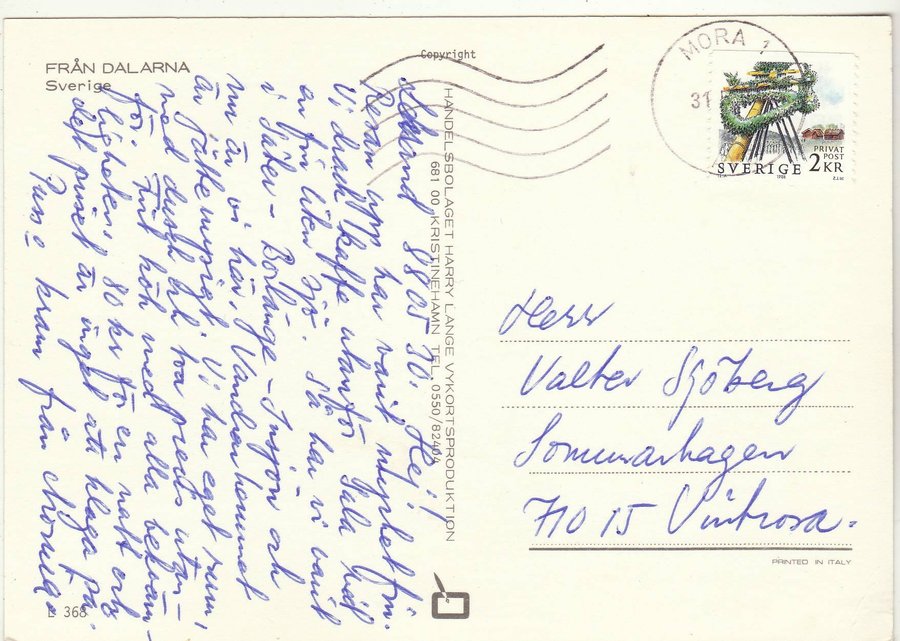 FRÅN DALARNA
Sverige
Copyright
HANDELSBOLAGET HARRY LANGE VYKORTSPRODUKTION
681 00 KRISTINEHAMN TEL. 0550/82404
MORA 1
31
PRIVAT
POST
SVERIGE 2 KR
1988
880530. Hej!
Resan upp har varit mycket fin.
Vi drack kaffe utanför Sala vid
en fin liten sjö. Så har vi varit
i Säter - Borlänge - Insjön och
nu är vi här. Vandrarhemmet
är jättemysigt. Vi har eget rum
med dusch och toa precis utan-
för. Fint kök med alla bekväm-
ligheter, 80 kr för en natt och
det priset är inget att klaga på.
Puss o kram från
Herr
Valter Sjöberg
Sommarhagen
710 15 Vintrosa.
PRINTED IN ITALY
L 368